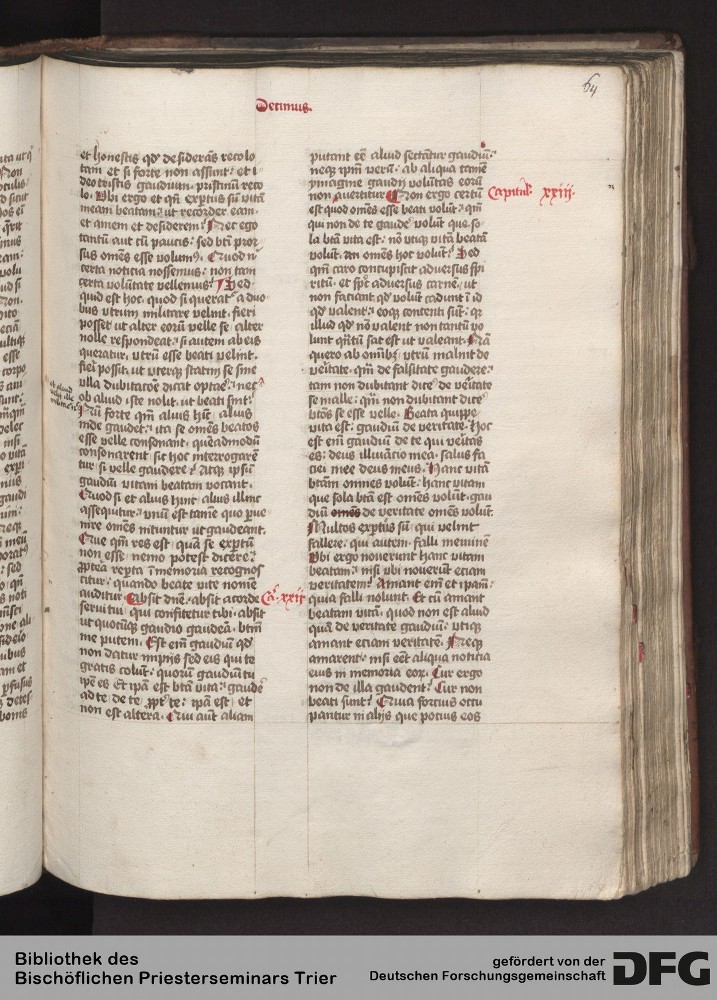 64
Decimus.
et honestis qd' desiderās recolo
tam et si forte non assint: et i
deo tristis gaudium pristinū reco
lo. Vbi ergo et qn̄ exptus sū vitā
meam beatam: ut recorder eam.
et amem et desiderem? Nec ego
tantū aut cū paucis: sed btī pror
sus omēs esse volumꝰ. Quod n
certa noticia nossemus: non tam
certa volūtate vellemus? Sed
quid est hoc. quod si querat᷑ a duo
bus utrum militare velint. fieri
posset ut alter eorū velle se alter
nolle respondeat: si autem ab eis
queratur. utrū esse beati velint.
fieri possit. ut uterque statim se sine
ulla dubitacōe dicat optare: nec
ob aliud iste nolit. ut beati sint?
esse velle consonant. quēadmodū
consonarent si hoc interrogarē
tur se velle gaudere? Atque ipsū
gaudiū vitam beatam vocant.
Quod si et alius hinc alius illinc
assequitur: unū est tamē quo per ve
nire omēs nituntur ut gaudeant.
Que qm̄ res est quā se exptū
non esse nemo potest dicere:
ꝓpterea repta ī memoria recognos
citur: quando beate vite nomē
auditur. Absit dn̄e. absit a corde
Ca. xxij
servi tui qui confitetur tibi. absit
ut quocūque gaudio gaudeā. btm̄
me putem. Est em̄ gaudiū qd'
non datur impijs sed eis qui te
gratis colūt: quorū gaudiū tu
ip̄e es Et ip̄a est btā vita: gaudē
ad te de te ꝓpt' te: ip̄a est et
non est altera. Qui aut aliam
putant eē aliud sectātur gaudiū:
neque ip̄m verū. ab aliqua tamē
ymagine gaudij volūtas eorū
non avertitur. Non ergo certū
Capitul. xxiij.
est quod omēs esse beati volūt: qm̄
qui non de te gaudē volūt que so
la btā vita est: nō utique vitā beatā
volūt. an omēs hoc volūt? Sed
qm̄ caro concupiscit adversus spi
ritū. et sp̄c adversus carnē. ut
non faciant qd' volūt cadunt ī id
qd' valent: eoque contenti sūt. qr
illud qd' nō valent non tantū vo
lunt qntū sat est ut valeant. Nā
quero ab omībꝫ utrū malint de
veritate. qm̄ de falsitate gaudere:
tam non dubitant dicē de veritate
se malle: qm̄ non dubitant dicē
btōs se esse velle. Beata quippe
vita est: gaudiū de veritate. Hoc
est em̄ gaudiū de te qui veritas
es: deus illuīatio mea. salus fa
ciei mee deus meus. Hanc vitā
btām omnes volūt: hanc vitam
que sola btā est omēs volūt. gau
diū omēs de veritate omēs volūt.
Multos exptus sū qui velint
fallere: qui autem falli neminē
Vbi ergo noverunt hanc vitam
beatam: nisi ubi noverūt etiam
veritatem? Amant em̄ et ip̄am:
quia falli nolunt. Et cū amant
beatam vitā. quod non est aliud
quā de veritate gaudiū: utique
amant etiam veritatē. Neque
amarent: nisi eēt aliqua noticia
eius in memoria eoꝝ. Cur ergo
non de illa gaudent? Cur non
beati sunt? Quia forcius occu
pantur in alijs que potius eos
Bibliothek des
Bischöflichen Priesterseminars Trier
gefördert von der
Deutschen Forschungsgemeinschaft
DFG